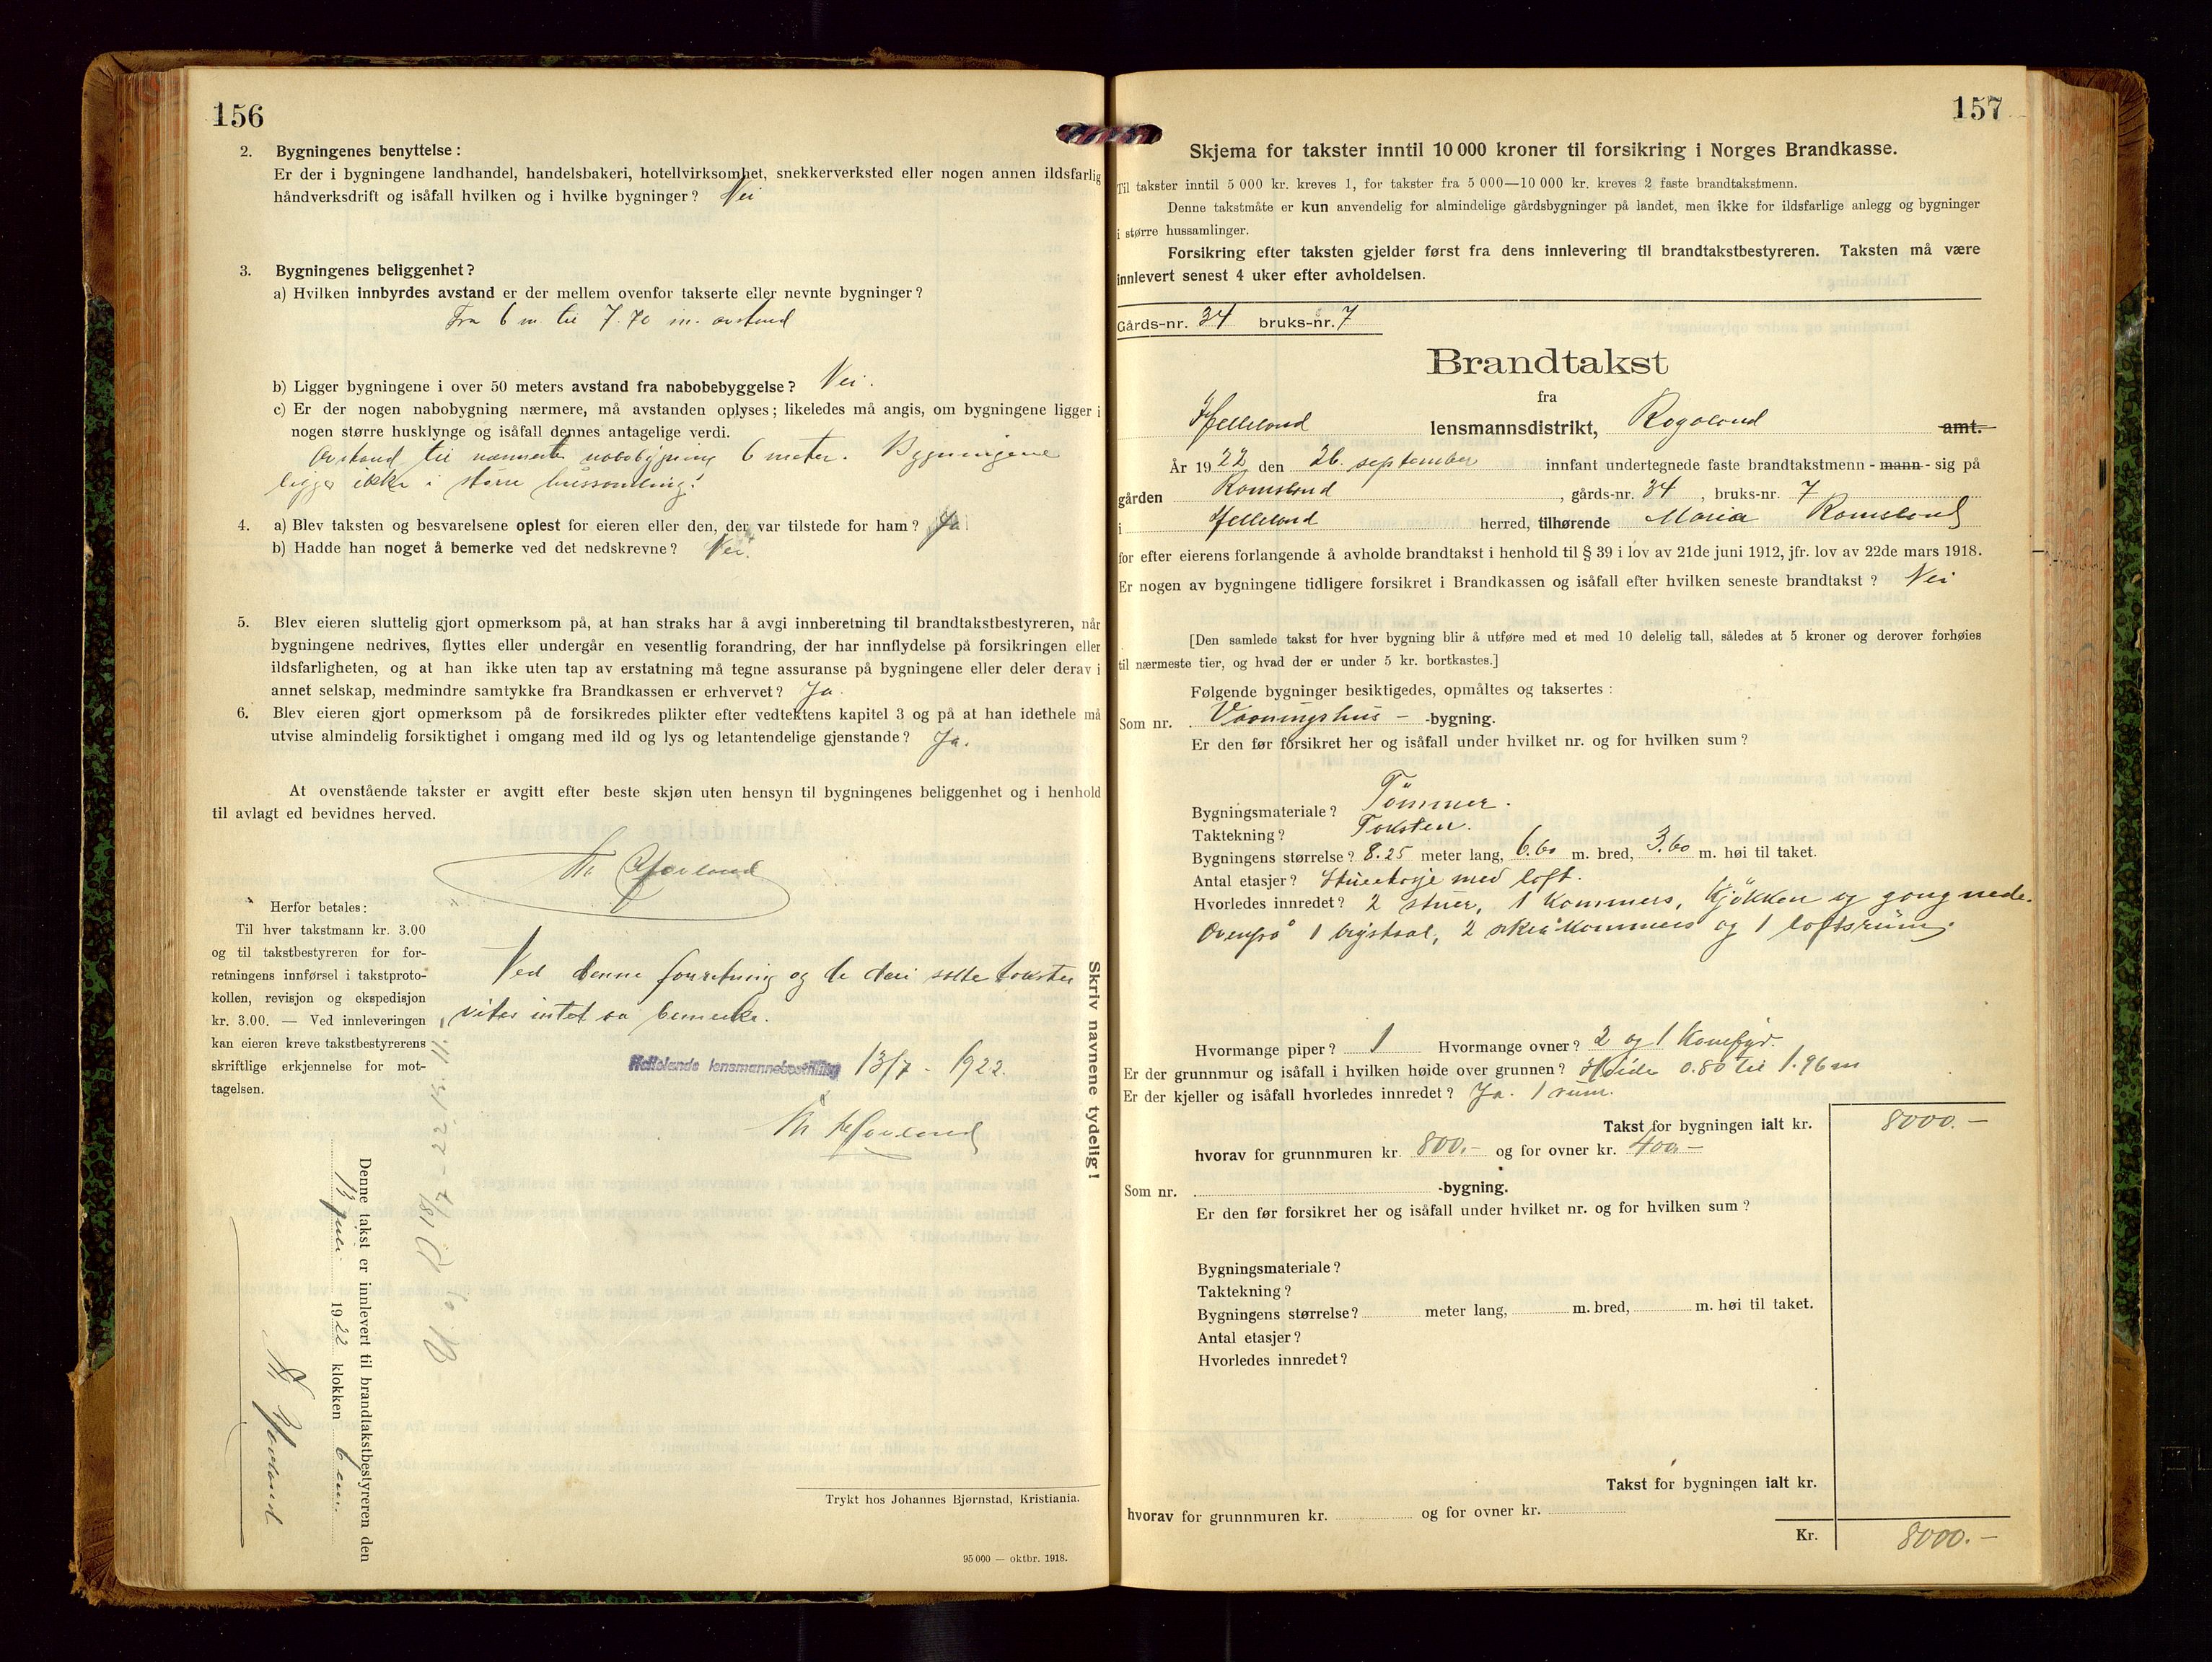 156
2. Bygningenes benyttelse :
Er der i bygningene landhandel, handelsbakeri, hotellvirksomhet, snekkerverksted eller nogen annen ildsfarlig
håndverksdrift og isåfall hvilken og i hvilke bygninger? Nei
3. Bygningenes beliggenhet?
a) Hvilken innbyrdes avstand er der mellem ovenfor takserte eller nevnte bygninger?
Fra 6 m. til 7.70 m. avstand
b) Ligger bygningene i over 50 meters avstand fra nabobebyggelse? Nei.
c) Er der nogen nabobygning nærmere, må avstanden oplyses; likeledes må angis, om bygningene ligger i
nogen større husklynge og isåfall dennes antagelige verdi.
Avstand til nærmeste nabobygning 6 meter. Bygningene
ligger ikke i større hussamling!
4. a) Blev taksten og besvarelsene oplest for eieren eller den, der var tilstede for ham? Ja
b) Hadde han noget å bemerke ved det nedskrevne? Nei.
5. Blev eieren sluttelig gjort opmerksom på, at han straks har å avgi innberetning til brandtakstbestyreren, når
bygningene nedrives, flyttes eller undergår en vesentlig forandring, der har innflydelse på forsikringen eller
ildsfarligheten, og at han ikke uten tap av erstatning må tegne assuranse på bygningene eller deler derav i
annet selskap, medmindre samtykke fra Brandkassen er erhvervet? Ja.
6. Blev eieren gjort opmerksom på de forsikredes plikter efter vedtektens kapitel 3 og på at han idethele må
utvise almindelig forsiktighet i omgang med ild og lys og letantendelige gjenstande? Ja.
At ovenstående takster er avgitt efter beste skjøn uten hensyn til bygningenes beliggenhet og i henhold
til avlagt ed bevidnes herved.
Th Hovland
Herfor betales:
Til hver takstmann kr. 3.00
og til takstbestyreren for for-
retningens innførsel i takstproto-
kollen, revisjon og ekspedisjon
kr. 3.00. — Ved innleveringen
kan eieren kreve takstbestyrerens
skriftlige erkjennelse for mot-
tagelsen.
Ved denne forretning og de deri satte takster
vites intet at bemerke.
Hellelands lensmannsbestilling 13/7 - 1922.
Th Hovland
Skriv navnene tydelig!
Denne takst er innlevert til brandtakstbestyreren den
13 juli 1922 klokken 6 em.
Th Hovland
Trykt hos Johannes Bjørnstad, Kristiania.
95 000 — oktbr. 1918.
157
Skjema for takster inntil 10 000 kroner til forsikring i Norges Brandkasse.
Til takster inntil 5 000 kr. kreves 1, for takster fra 5 000—10 000 kr. kreves 2 faste brandtakstmenn.
Denne takstmåte er kun anvendelig for almindelige gårdsbygninger på landet, men ikke for ildsfarlige anlegg og bygninger
i større hussamlinger.
Forsikring efter taksten gjelder først fra dens innlevering til brandtakstbestyreren. Taksten må være
innlevert senest 4 uker efter avholdelsen.
Gårds-nr. 34 bruks-nr. 7
Brandtakst
fra
Helleland lensmannsdistrikt, Rogaland amt.
År 1922 den 26. september innfant undertegnede faste brandtakstmenn - mann - sig på
gården Ramsland , gårds-nr. 34 , bruks-nr. 7
i Helleland herred, tilhørende Maria Ramsland
for efter eierens forlangende å avholde brandtakst i henhold til § 39 i lov av 21de juni 1912, jfr. lov av 22de mars 1918.
Er nogen av bygningene tidligere forsikret i Brandkassen og isåfall efter hvilken seneste brandtakst ? Nei
[Den samlede takst for hver bygning blir å utføre med et med 10 delelig tall, således at 5 kroner og derover forhøies
til nærmeste tier, og hvad der er under 5 kr. bortkastes.]
Følgende bygninger besiktigedes, opmåltes og taksertes :
Som nr. Vaaningshus – -bygning.
Er den før forsikret her og isåfall under hvilket nr. og for hvilken sum?
Bygningsmateriale? Tömmer.
Taktekning? Taksten.
Bygningens størrelse? 8.25 meter lang, 6.60 m. bred, 3.60 m. høi til taket.
Antal etasjer? Stueetasje med loft.
Hvorledes innredet? 2 stuer, 1 kammers, kjökken og gang nede.
Ovenpå 1 brystsal, 2 skråkammers og 1 loftsrum.
Hvormange piper? 1 Hvormange ovner? 2 og 1 komfyr
Er der grunnmur og isåfall i hvilken høide over grunnen? Höide 0.80 til 1.96 m
Er der kjeller og isåfall hvorledes innredet? Ja. 1 rum.
Takst for bygningen ialt kr. 8000.–
hvorav for grunnmuren kr. 800.– og for ovner kr. 400.–
Som nr. -bygning.
Er den før forsikret her og isåfall under hvilket nr. og for hvilken sum ?
Bygningsmateriale?
Taktekning?
Bygningens størrelse? meter lang, m. bred, m. høi til taket.
Antal etasjer?
Hvorledes innredet?
Takst for bygningen ialt kr.
hvorav for grunnmuren kr. og for ovner kr.
Kr. 8000.–